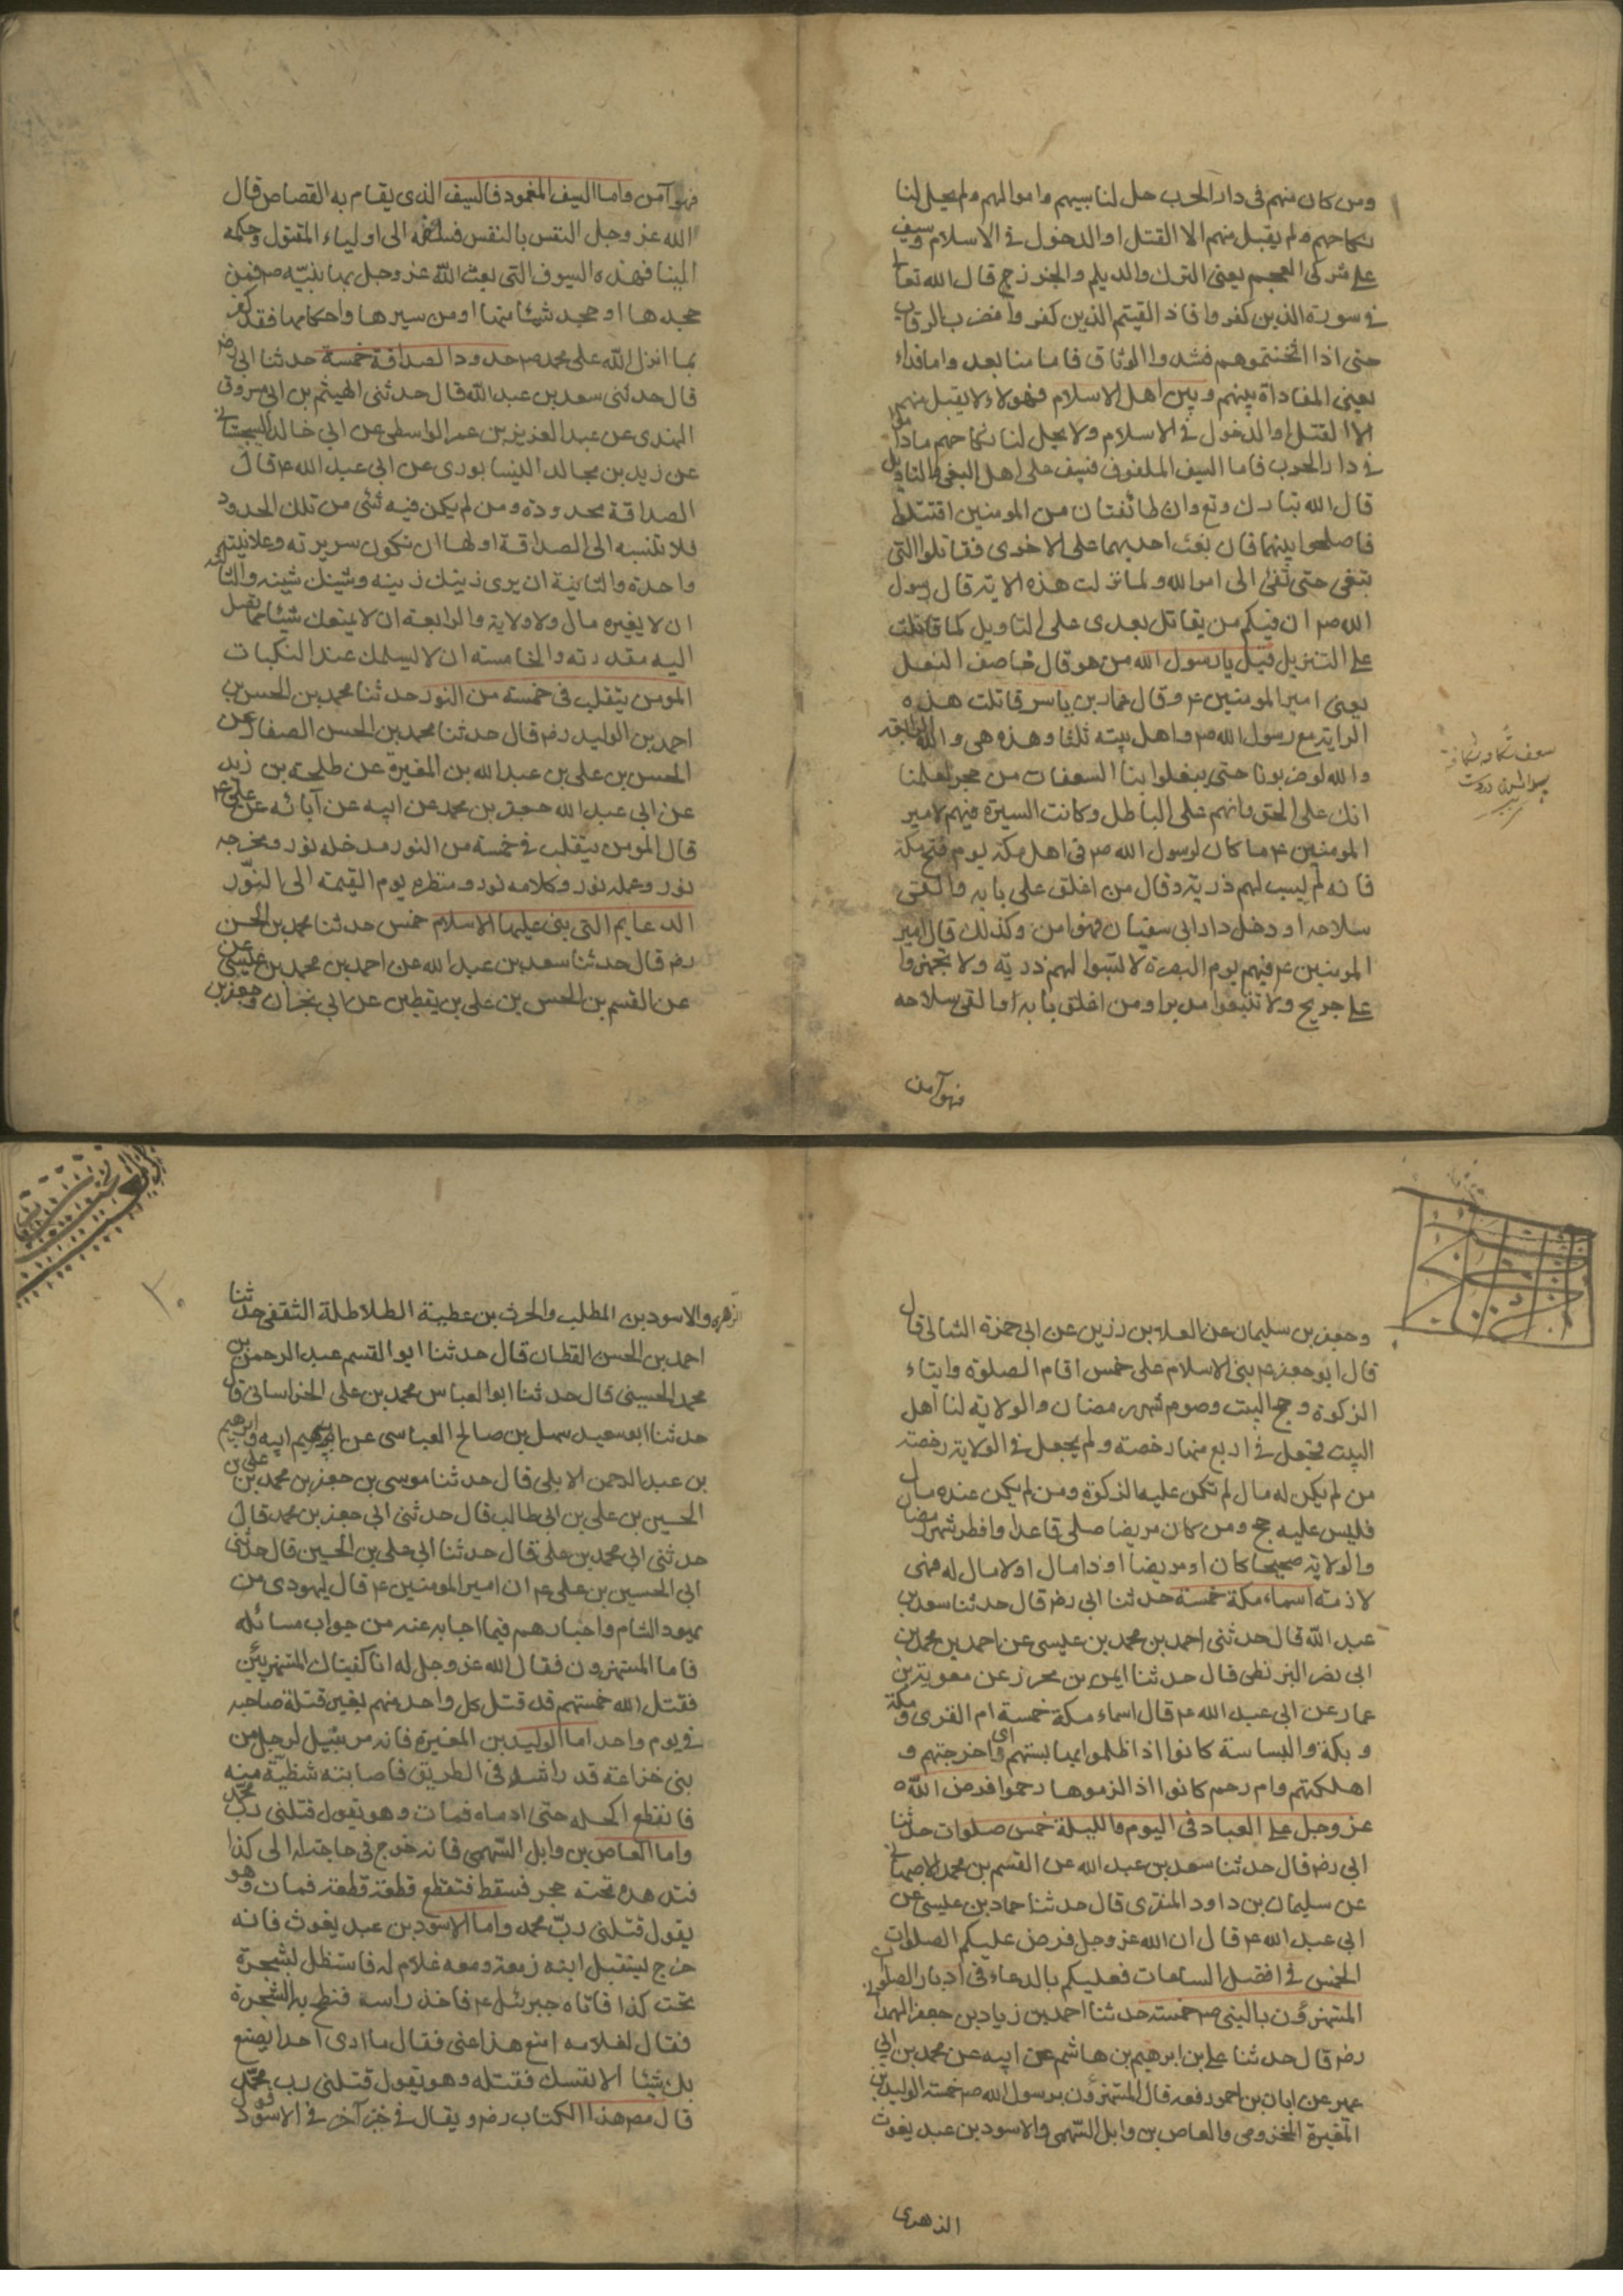 ومن كان منهم فى دار الحرب حل لنا سبيهم واموالهم ولم يحل لنا
نكاحهم ولم يقبل منهم الا القتل او الدخول فى الاسلام وسيف
على مشركى العجم يعنى الترك والديلم والخزرج قال الله تعالى
فى سورة الذين كفروا فاذا لقيتم الذين كفروا فضرب الرقاب
حتى اذا اثخنتموهم فشدوا الوثاق فاما منا بعد واما فداء
يعنى المفاداة بينهم وبين اهل الاسلام فهولاء لا يقبل منهم
الا القتل او الدخول فى الاسلام ولا يحل لنا نكاحهم ماداموا
فى دار الحرب فاما السيف الملفوف فسيف على اهل البغى والتاويل
قال الله تبارك وتع وان طائفتان من المومنين اقتتلوا
فاصلحوا بينهما فان بغت احديهما على الاخرى فقاتلوا التى
تبغى حتى تفئ الى امر الله ولما نزلت هذه الاية قال رسول
الله ص ان فيكم من يقاتل بعدى على التاويل كما قاتلت
على التنزيل قيل يا رسول الله من هو قال خاصف النعل
يعنى امير المومنين ع وقال عمار بن ياسر قاتلت هذه
الراية مع رسول الله ص واهل بيته ثلثا وهذه هى والله الرابعة
والله لو ضربونا حتى يبغلوا بنا السعفات من هجر لعلمنا
انك على الحق وانهم على الباطل وكانت السيرة فيهم لامير
المومنين ع ما كان لرسول الله ص فى اهل مكة يوم فتح مكة
فانه لم يسب لهم ذرية وقال من اغلق على بابه والقى
سلاحه او دخل دار ابى سفيان فهو امن وكذلك قال امير
المومنين ع فيهم يوم البصرة لا تسبوا لهم ذرية ولا تجهزوا
على جريح ولا تتبعوا مدبرا ومن اغلق بابه او القى سلاحه
فهو آمن
فهو آمن واما السيف المغمود فالسيف الذى يقام به القصاص قال
الله عز وجل النفس بالنفس فسله الى اولياء المقتول وحكمه
الينا فهذه السيوف التى بعث الله عز وجل بها نبيّه ص فمن
جحدها او جحد شيئا منها او من سيرها واحكامها فقد كفر
بما انزل الله على محمد ص حدود الصداقة خمسة حدثنا ابى رض
قال حدثنى سعد بن عبد الله قال حدثنى الهيثم بن ابى مسروق
النهدى عن عبد العزيز بن عمر الواسطى عن ابى خالد السجستانى
عن زيد بن مجالد النيسابورى عن ابى عبد الله ع قال
الصداقة محدودة ومن لم يكن فيه شئ من تلك الحدود
فلا تنسبه الى الصداقة اولها ان تكون سريرته وعلانيته
واحدة والثانية ان يرى زينك زينه وشينك شينه والثالثة
ان لا يغيره مال ولا ولاية والرابعة ان لا يمنعك شيئا مما تصل
اليه مقدرته والخامسة ان لا يسلمك عند النكبات
المومن يتقلب فى خمسة من النور حدثنا محمد بن الحسن بن
احمد بن الوليد رض قال حدثنا محمد بن الحسن الصفار عن
الحسن بن على بن عبد الله بن المغيرة عن طلحة بن زيد
عن ابى عبد الله جعفر بن محمد عن ابيه عن آبائه عن على ع
قال المومن يتقلب فى خمسة من النور مدخله نور ومخرجه
نور وعمله نور وكلامه نور ومنظره يوم القيمة الى النّور
الدعايم التى بنى عليها الاسلام خمس حدثنا محمد بن الحسن
رض قال حدثنا سعد بن عبد الله عن احمد بن محمد بن عيسى
عن القسم بن الحسن بن على بن يقطين عن ابى نجران وجعفر بن
وجعفر بن سليمان عن العلا بن رزين عن ابى حمزة الثمالى قال
قال ابو جعفر ع بنى الاسلام على خمس اقام الصلوة وايتاء
الزكوة وحج البيت وصوم شهر رمضان والولاية لنا اهل
البيت فجعل فى اربع منها رخصة ولم يجعل فى الولاية رخصة
من لم يكن له مال لم تكن عليه الزكوة ومن لم يكن عنده مال
فليس عليه حج ومن كان مريضا صلى قاعدا وافطر شهر رمضا
والولاية صحيحا كان او مريضا او ذا مال او لا مال له فهى
لازمة اسماء مكة خمسة حدثنا ابى رض قال حدثنا سعد بن
عبد الله قال حدثنى احمد بن محمد بن عيسى عن احمد بن محمد بن
ابى نصر البزنطى قال حدثنا ايمن بن محرز عن معوية بن
عمار عن ابى عبد الله ع قال اسماء مكة خمسة ام القرى ومكة
وبكة والبساسة كانوا اذا ظلموا بها بستهم اى اخرجتهم و
اهلكتهم وام رحم كانوا اذا لزموها رحموا فرض الله
عز وجل على العباد فى اليوم والليلة خمس صلوات حدثنا
ابى رض قال حدثنا سعد بن عبد الله عن القسم بن محمد الاصبهانى
عن سليمان بن داود المنقرى قال حدثنا حماد بن عيسى عن
ابى عبد الله ع قال ان الله عز وجل فرض عليكم الصلوات
الخمس فى افضل الساعات فعليكم بالدعاء فى ادبار الصلوات
المستهزؤن بالنبى ص خمسة حدثنا احمد بن زياد بن جعفر الهمدانى
رض قال حدثنا على بن ابرهيم بن هاشم عن ابيه عن محمد بن ابى
عمير عن ابان بن احمر رفعه قال المستهزؤن برسول الله ص خمسة الوليد بن
المغيرة المخزومى والعاص بن وايل السّهمى والاسود بن عبد يغوث
الزهرى
الزهرى والاسود بن المطلب والحرث بن عطية الطلاطلة الثقفى حدثنا
احمد بن الحسن القطان قال حدثنا ابو القسم عبد الرحمن بن
محمد الحسينى قال حدثنا ابو العباس محمد بن على الخراسانى قال
حدثنا ابو سعيد سهل بن صالح العباسى عن ابيه وابرهيم
بن عبد الرحمن الابلى قال حدثنا موسى بن جعفر بن محمد بن على بن
الحسين بن على بن ابى طالب قال حدثنى ابى جعفر بن محمد قال
حدثنى ابى محمد بن على قال حدثنا ابى على بن الحسين قال حدثنى
ابى الحسين بن على ع ان امير المومنين ع قال ليهودى من
يهود الشام واحبارهم فيما اجابه عنه من جواب مسائله
فاما المستهزون فقال الله عز وجل له انا كفيناك المستهزئين
فقتل الله خمستهم قد قتل كل واحد منهم بغير قتلة صاحبه
فى يوم واحد اما الوليد بن المغيرة فانه مر بنبل لرجل من
بنى خزاعة قد راشه فى الطريق فاصابته شظية منه
فانقطع اكحله حتى ادماه فمات وهو يقول قتلنى ربّ محمّد
واما العاص بن وايل السّهمى فانه خرج فى حاجة له الى كذا
فتدهده تحته حجر فسقط فتقطع قطعة قطعة فمات وهو
يقول قتلنى ربّ محمد واما الاسود بن عبد يغوث فانه
خرج ليستقبل ابنه زمعة ومعه غلام له فاستظل بشجرة
تحت كذا فاتاه جبرئيل ع فاخذ راسه فنطح به الشجرة
فقال لغلامه امنع هذا عنى فقال ما ارى احدا يصنع
بك شيئا الا نفسك فقتله وهو يقول قتلنى رب محمّد
قال مص هذا الكتاب رض ويقال فى خبر آخر فى الاسود قول